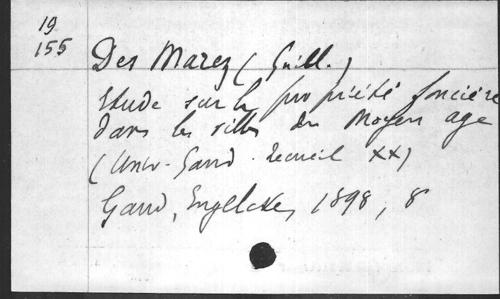 19
155
Des Marez (Guill.)
Etude sur la propriété foncière
dans les villes du Moyen age
(Univ. Gand. Recueil XX)
Gand, Engelcke, 1898, 8